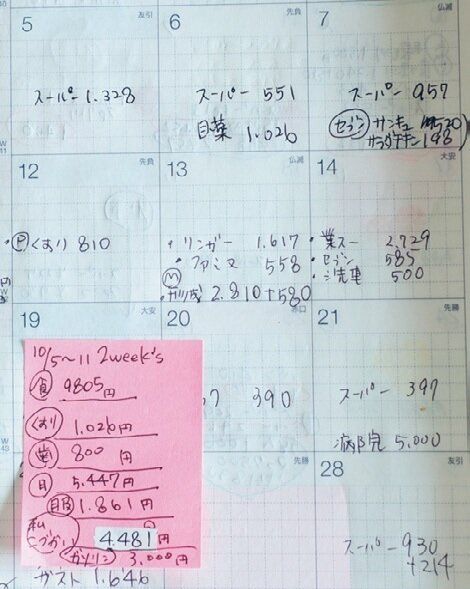 5 友引
スーパー 1.328
6 先負
スーパー 551
目薬 1.026
7 仏滅
スーパー 957
セブン サンキュ 530
サラダチキン 198
12 先負
くすり 810
13 仏滅
・リンガー 1.617
・ファミマ 558
M
2.810+580
14 大安
・業スー 2.729
・セブン 585
・洗車 500
19 大安
20
390
21 先勝
スーパー 397
病院 5,000
先勝
28 友引
スーパー 930
+214
10/5~11 2week's
食 9805円
くすり 1.026円
800円
月 5.447円
服 1.861円
私 こづかい 4.481円
ガソリン 3.000円
ガスト 1.646